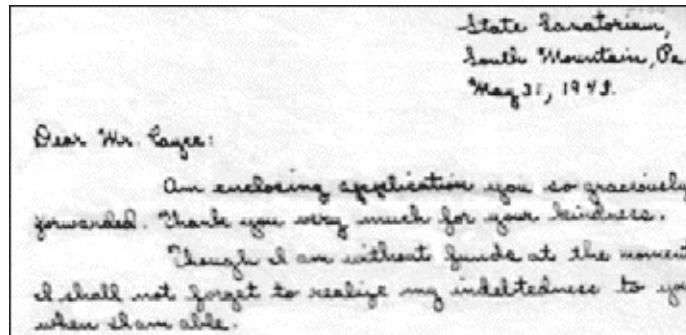 State Sanatorium,
South Mountain, Pa.
May 31, 1943.
Dear Mr. Cayce:
Am enclosing application you so graciously
forwarded. Thank you very much for your kindness.
Though I am without funds at the moment
I shall not forget to realize my indebtedness to you
when I am able.